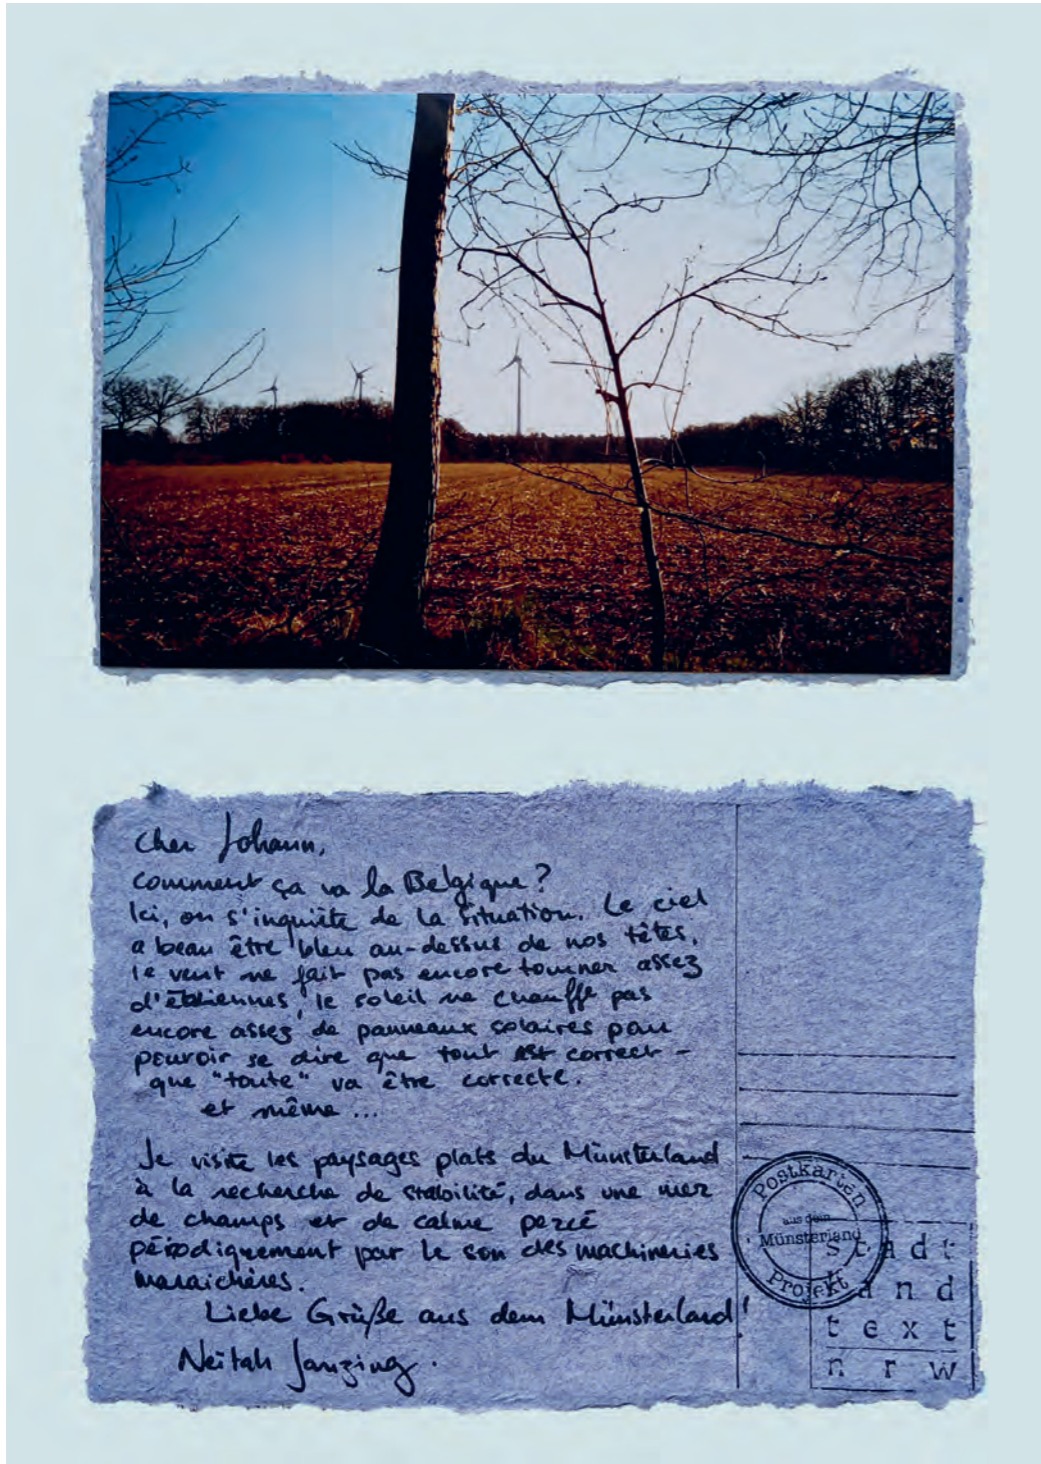 Cher Johann,
comment ça va la Belgique?
Ici, on s'inquiète de la situation. Le ciel
a beau être bleu au-dessus de nos têtes,
le vent ne fait pas encore tourner assez
d'éoliennes, le soleil ne chauffe pas
encore assez de panneaux solaires pour
pouvoir se dire que tout est correct -
que "toute" va être correcte.
et même ...
Je visite les paysages plats du Münsterland
à la recherche de stabilité, dans une mer
de champs et de calme percé
périodiquement par le son des machineries
maraichères.
Liebe Grüße aus dem Münsterland!
Janzing.
Postkarten
aus dem
Münsterland
Projekt
stadt
land
text
nrw